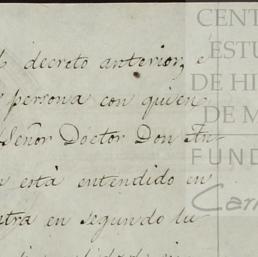 decreto anterior, e
persona con quien
Señor Doctor Don An
está entendido en
tra en segundo lu-
CENT
ESTU
DE HI
DE M
FUND
Car